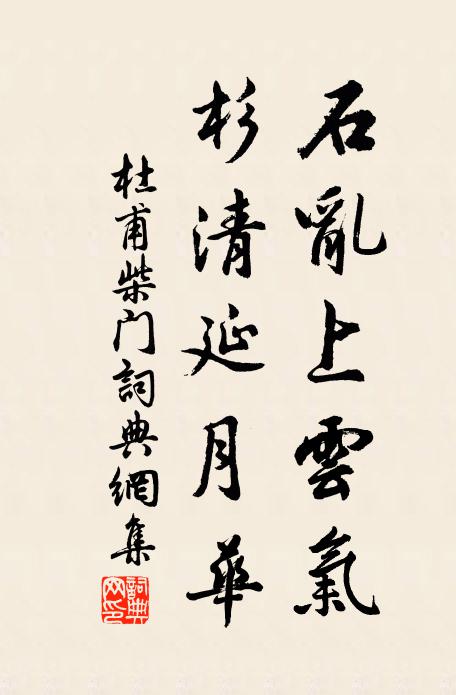 石亂上雲氣
杉清延月華
杜甫柴門詞典網集
詞典網印